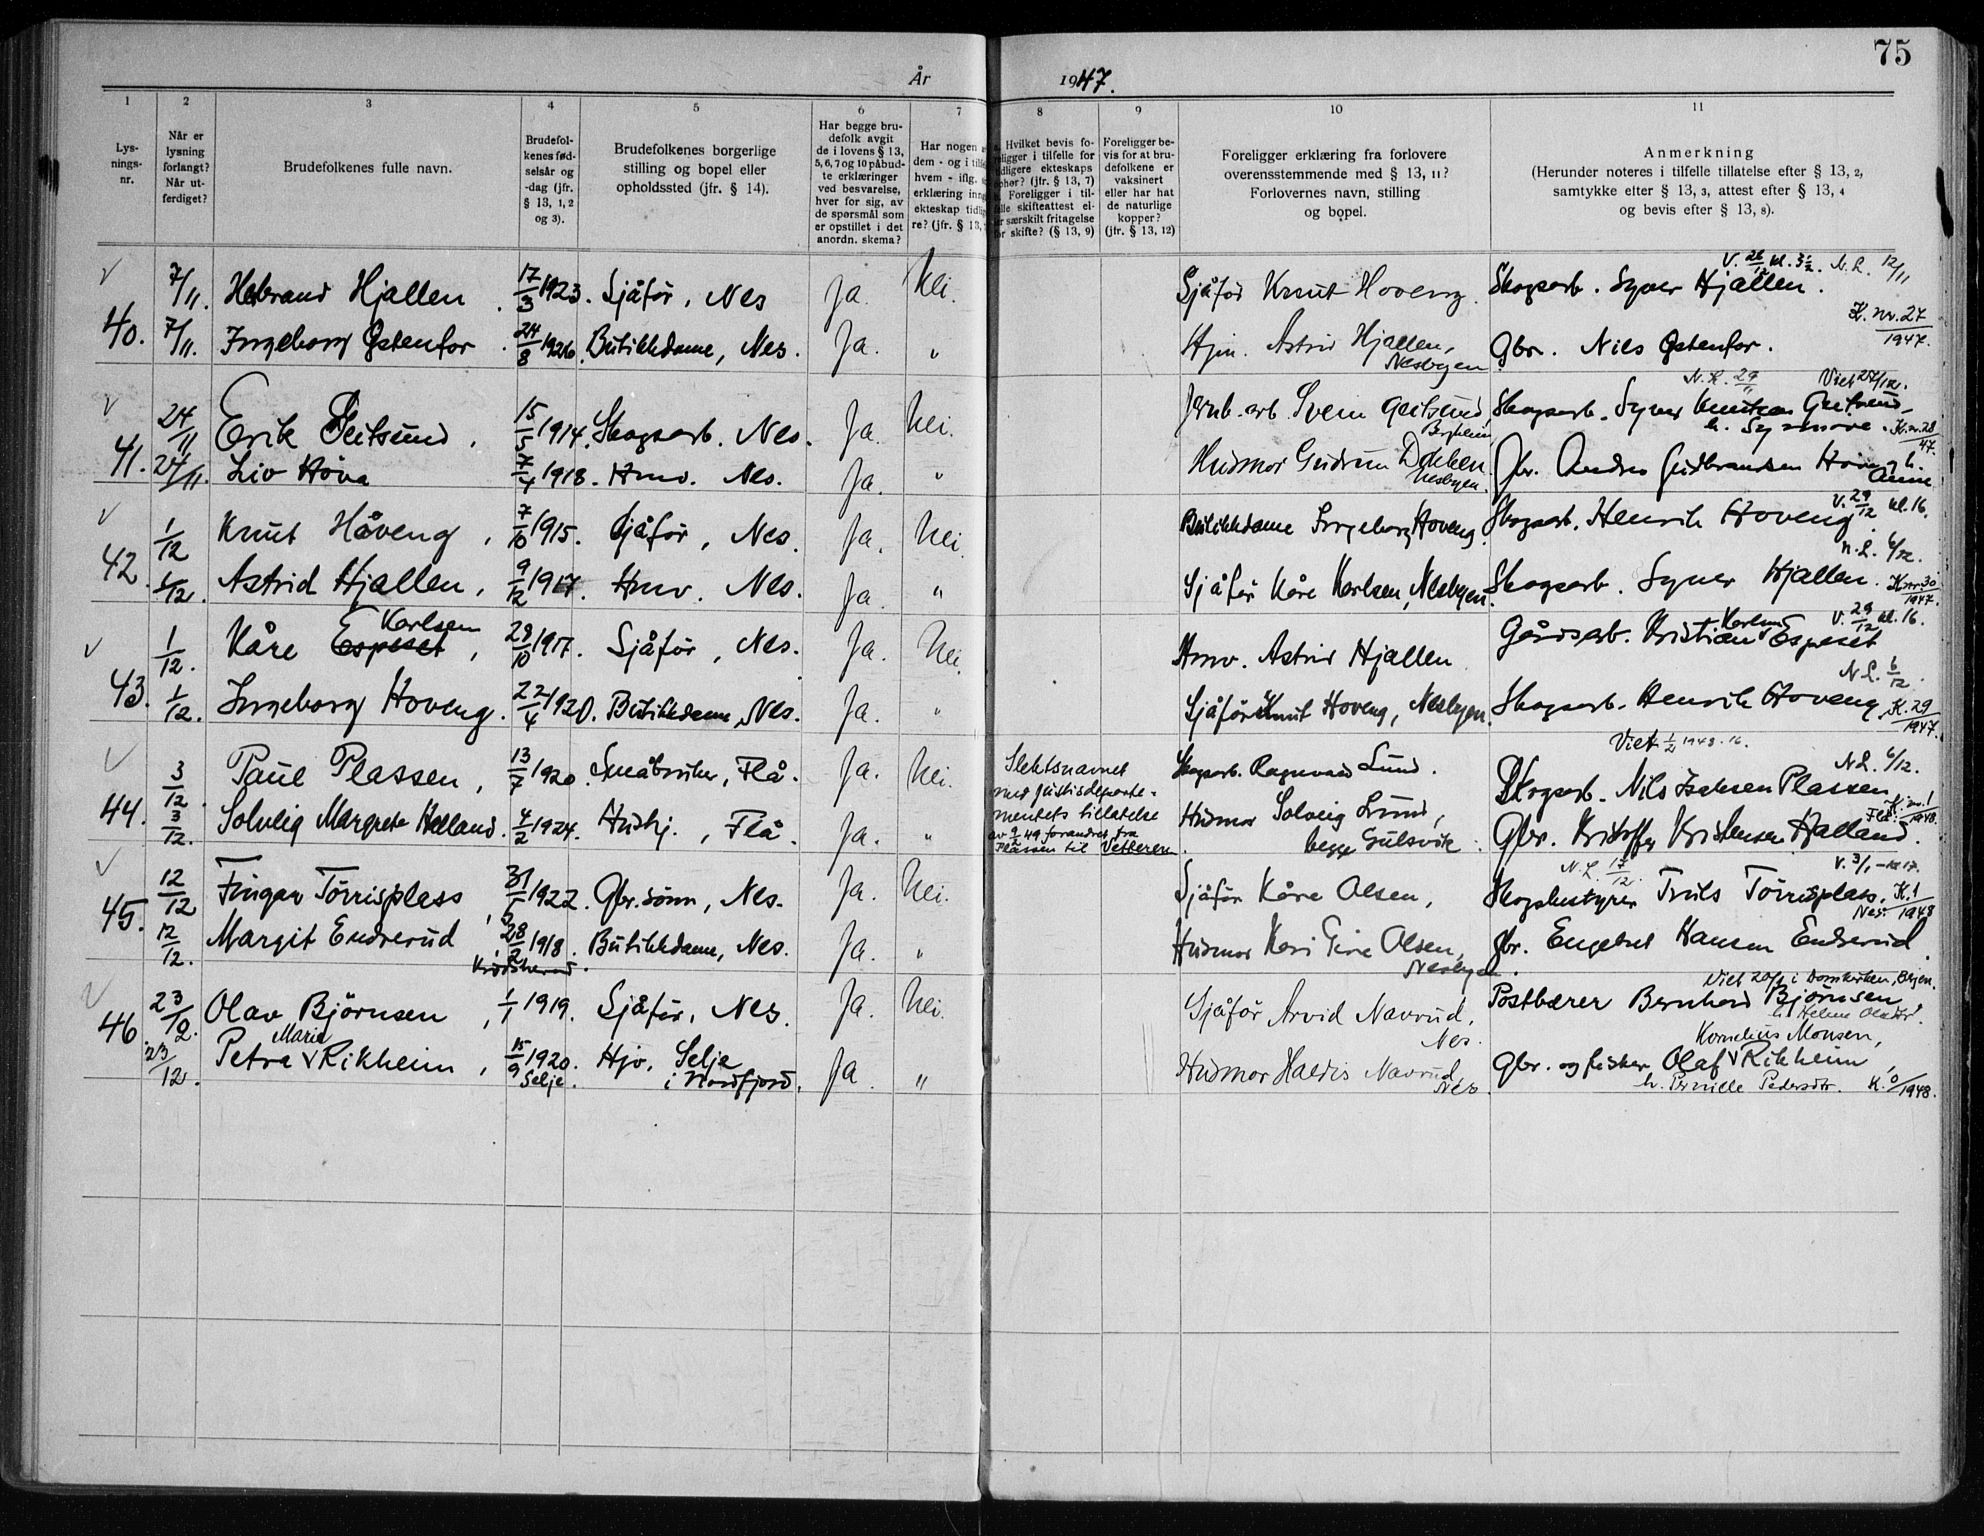 75
År 1947.
1 2 3 4 5 6 7 8 9 10 11
Lysningsnr.
Når er lysning forlangt? Når utferdiget?
Brudefolkenes fulle navn.
Brudefolkenes fødselsår og -dag (jfr. § 13, 1, 2 og 3).
Brudefolkenes borgerlige stilling og bopel eller opholdssted (jfr. § 14).
Har begge brudefolk avgit de i lovens § 13, 5, 6, 7 og 10 påbudte erklæringer ved besvarelse, hver for sig, av de spørsmål som er opstillet i det anordn. skema?
Har nogen dem - og i hvem - iflg. erklæring ekteskap re? (jfr. § 13,
Hvilket bevis fo- i tilfelle for ekteskaps (jfr. § 13, 7) Foreligger i til- skifteattest el- særskilt fritagelse skifte? (§ 13, 9)
Foreligger bevis for at brudefolkene er vaksinert eller har hat de naturlige kopper? (jfr. § 13, 12)
Foreligger erklæring fra forlovere overensstemmende med § 13, 11? Forlovernes navn, stilling og bopel.
Anmerkning (Herunder noteres i tilfelle tillatelse efter § 13, 2, samtykke efter § 13, 3, attest efter § 13, 4 og bevis efter § 13, 8).
V. 26/12 kl. 3½. N.L. 12/11
7/11. Hebrand Hjallen. 17/3 1923. Sjåfør, Nes Ja. Nei. Sjåfør Knut Hoveng. Skogsarb. Syver Hjallen.
K. nr. 27 1947.
40. 7/11. Ingeborg Østenfor. 24/8 1926. Butikkdame, Nes. Ja. " Hjm. Astrid Hjallen, Nesbyen Gbr. Nils Østenfor.
N.L. 29/11 Viet 27/12.
24/11 Erik Geitsund. 15/5 1914. Skogsarb. Nes. Ja. Nei. Jernb.arb. Svein Geitsund, Bergheim Skogsarb. Syver Knutsen Geitsund
h. Synnøve. K. nr. 28 47.
41. 24/11. Liv Hova 7/4 1918. Hmv. Nes. Ja. " Husmor Gudrun Dokken. Nesbyen. Gbr. Andres Gudbrandsen Hova h. Anne
V. 29/12 kl. 16.
1/12 Knut Håveng, 7/10 1915. Sjåfør, Nes. Ja. Nei. Butikkdame Ingeborg Hoveng. Skogsarb. Henrik Hoveng.
N.L. 6/12.
42. 1/12. Astrid Hjallen, 9/12 1917. Hmv. Nes. Ja. " Sjåfør Kåre Karlsen, Nesbyen. Skogsarb. Syver Hjallen. K. nr. 30 1947.
V. 29/12 kl. 16.
1/12. Kåre Espeset Karlsen, 28/10 1917. Sjåfør, Nes. Ja. Nei. Hmv. Astrid Hjallen Gårdsarb. Kristian Karlsen Espeset
N.L. 6/12.
43. 1/12. Ingeborg Hoveng. 22/4 1920. Butikkdame, Nes. Ja. " Sjåfør Knut Hoveng, Nesbyen. Skogsarb. Henrik Hoveng K. 29 1947.
Viet 1/2 1948. 16.
N.L. 6/12.
3/12. Paul Plassen, 13/7 1920. Småbruker, Flå. Ja. Nei. Slektsnavnet med Justisdepartementets tillatelse av 9/2 49 forandret fra Plassen til Vetteren Skogsarb. Ragnvald Lund. Skogsarb. Nils Isaksen Plassen
K. nr. 1 Flå. 1948.
44. 3/12. Solveig Margrete Halland. 4/2 1924. Hushj., Flå. Ja. " Husmor Solveig Lund, begge Gulsvik. Gbr. Kristoffer Kristensen Halland.
N.L. 17/12. V. 3/1 - kl. 17.
12/12 Fingar Tørrisplass, 31/5 1922. Gbr. sønn, Nes. Ja. Nei. Sjåfør Kåre Olsen, Skogbestyrer Truls Tørrisplass. K. 1 Nes. 1948
45. 12/12. Margit Endrerud 28/2 1918. Krødsherad. Butikkdame, Nes. Ja. " Husmor Kari Gire Olsen, Nesbyen. Gbr. Engebret Hansen Endrerud.
Viet 20/ i Domkirken, Bergen.
23/12. Olav Bjørnsen, 1/1 1919. Sjåfør, Nes. Ja. Nei. Sjåfør Arvid Navrud, Nes. Postbærer Bernhard Bjørnsen
h. Helene Olsdtr.
46. 23/12. Petra Marie Rikheim, 15/9 1920. Selje. Hjv. Selje i Nordfjord. Ja. " Husmor Haldis Navrud, Nes. Gbr. og fisker Olaf Kornelius Monsen Rikheim,
h. Pernille Pedersdtr. K. 0/1948.